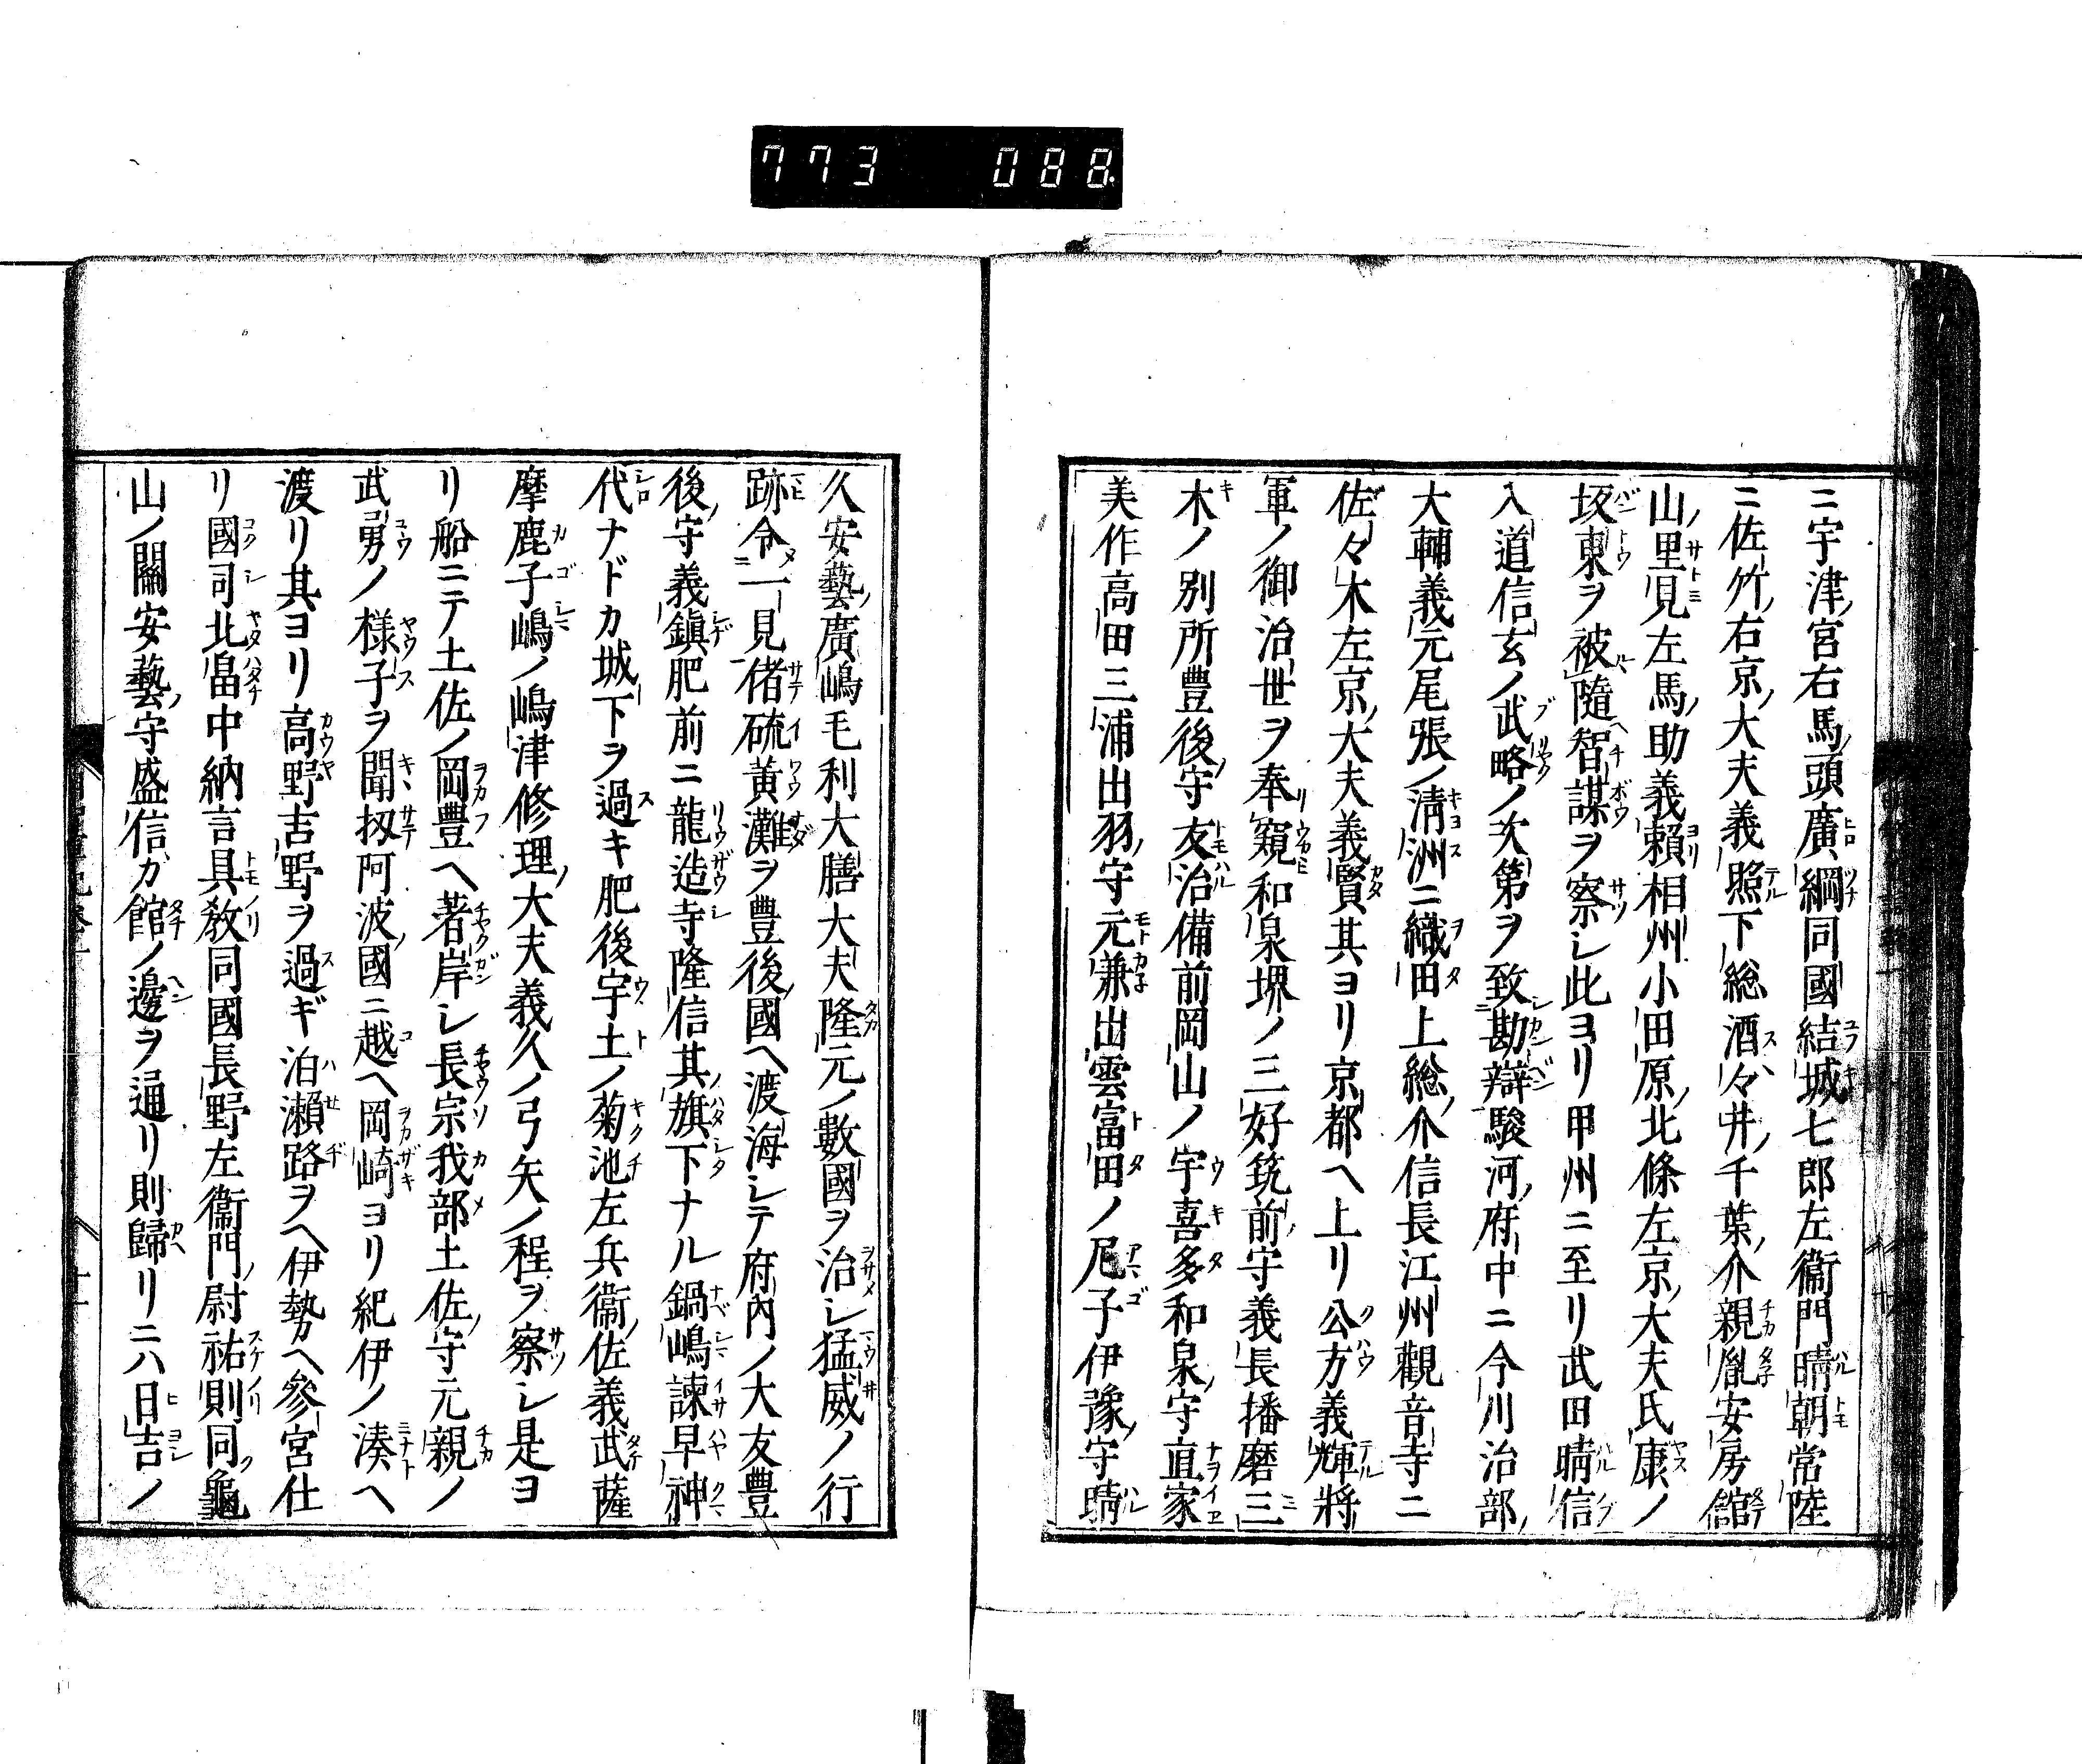 773 088
ニ宇津宮右馬頭廣綱同國結城七郎左衞門晴朝常陸
ニ佐竹右京大夫義照下総酒々井千葉介親胤安房館
山里見左馬助義賴相州小田原北條左京大夫氏康ノ
坂東ヲ被隨智謀ヲ察シ此ヨリ甲州ニ至リ武田晴信
入道信玄ノ武略ノ次第ヲ致勘辯駿河府中ニ今川治部
大輔義元尾張ノ淸洲ニ織田上総介信長江州觀音寺ニ
佐々木左京大夫義賢其ヨリ京都ヘ上リ公方義輝將
軍ノ御治世ヲ奉窺和泉堺ノ三好筑前守義長播磨三
木ノ別所豊後守友治備前岡山ノ宇喜多和泉守直家
美作高田三浦出羽守元兼出雲富田ノ尼子伊豫守晴
久安藝廣嶋毛利大膳大夫隆元ノ數國ヲ治シ猛威ノ行
跡令一見偖硫黄灘ヲ豊後國ヘ渡海シテ府內ノ大友豊
後守義鎭肥前ニ龍造寺隆信其旗下ナル鍋嶋諫早神
代ナドカ城下ヲ過キ肥後宇土ノ菊池左兵衞佐義武薩
摩鹿子嶋ノ嶋津修理大夫義久ノ弓矢ノ程ヲ察シ是ヨ
リ船ニテ土佐ノ岡豊ヘ著岸シ長宗我部土佐守元親ノ
武勇ノ様子ヲ聞扨阿波國ニ越ヘ岡崎ヨリ紀伊ノ湊ヘ
渡リ其ヨリ高野吉野ヲ過ギ泊瀬路ヲヘ伊勢ヘ參宮仕
リ國司北畠中納言具敎同國長野左衞門尉祐則同龜
山ノ關安藝守盛信カ館ノ邊ヲ通リ則歸リニハ日吉ノ